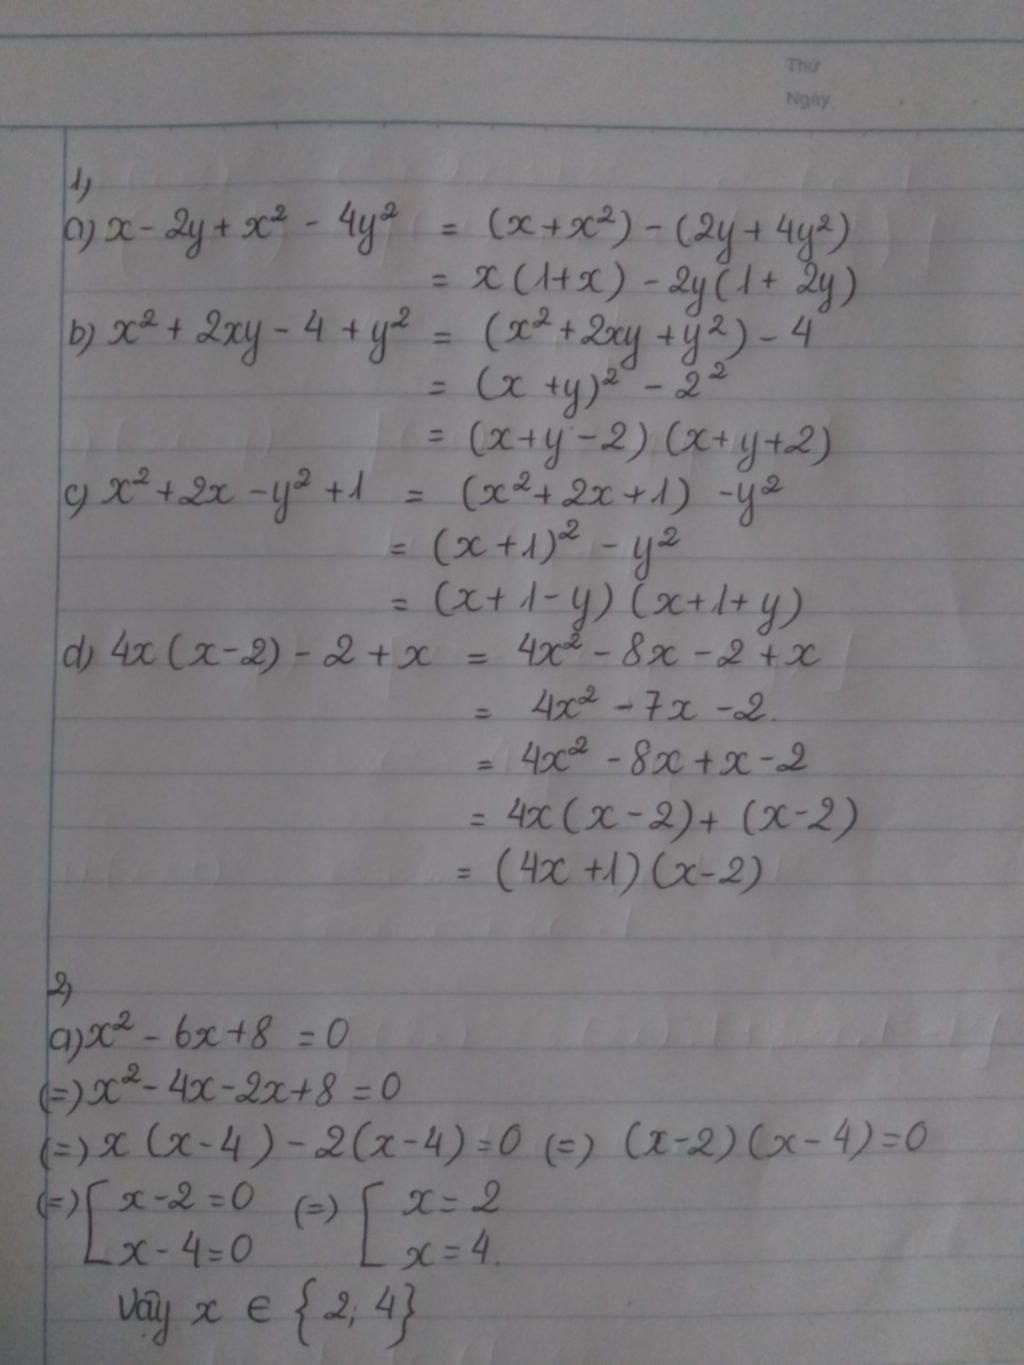 Thứ
Ngày
1,
a) x - 2y + x² - 4y² = (x + x²) - (2y + 4y²)
= x(1+x) - 2y(1 + 2y)
b) x² + 2xy - 4 + y² = (x² + 2xy + y²) - 4
= (x + y)² - 2²
= (x+y-2)(x+y+2)
c) x² + 2x - y² + 1 = (x² + 2x + 1) - y²
= (x + 1)² - y²
= (x + 1 - y)(x + 1 + y)
d) 4x(x-2) - 2 + x = 4x² - 8x - 2 + x
= 4x² - 7x - 2.
= 4x² - 8x + x - 2
= 4x(x-2) + (x-2)
= (4x + 1)(x-2)
2,
a) x² - 6x + 8 = 0
(=) x² - 4x - 2x + 8 = 0
(=) x(x-4) - 2(x-4) = 0 (=) (x-2)(x-4) = 0
(=) [ x - 2 = 0 (=) [ x = 2
x - 4 = 0 x = 4.
Vậy x ∈ {2; 4}